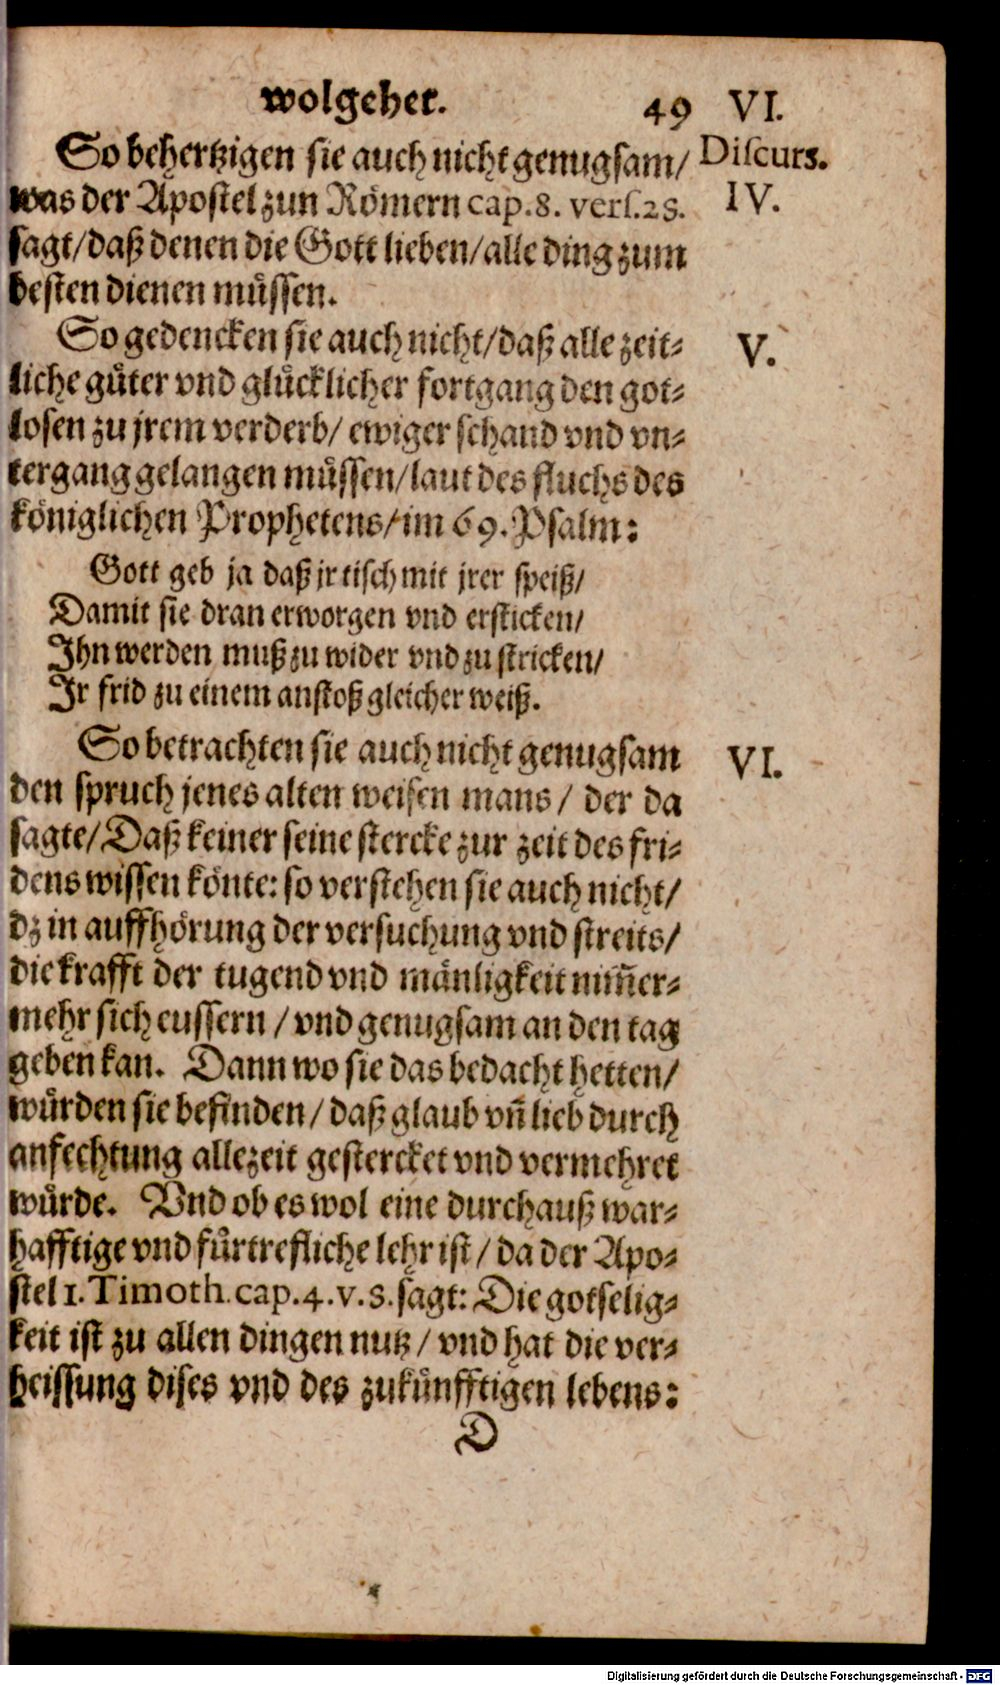 wolgehet. 49 VI.
Discurs.
So behertzigen sie auch nicht genugsam/
IV.
was der Apostel zun Römern cap. 8. vers. 28.
sagt/ daß denen die Gott lieben/ alle ding zum
besten dienen müssen.
So gedencken sie auch nicht/ daß alle zeit-
V.
liche güter vnd glücklicher fortgang den got-
losen zu jrem verderb/ ewiger schand vnd vn-
tergang gelangen müssen/ laut des fluchs des
königlichen Prophetens/ im 69. Psalm:
Gott geb ja daß jr tisch mit jrer speiß/
Damit sie dran erworgen vnd ersticken/
Ihn werden muß zu wider vnd zu stricken/
Ir frid zu einem anstoß gleicher weiß.
So betrachten sie auch nicht genugsam
VI.
den spruch jenes alten weisen mans/ der da
sagte/ Daß keiner seine stercke zur zeit des fri-
dens wissen könte: so verstehen sie auch nicht/
dz in auffhörung der versuchung vnd streits/
die krafft der tugend vnd mänligkeit nim̄er-
mehr sich eussern/ vnd genugsam an den tag
geben kan. Dann wo sie das bedacht hetten/
würden sie befinden/ daß glaub vn̄ lieb durch
anfechtung allezeit gestercket vnd vermehret
würde. Vnd ob es wol eine durchauß war-
hafftige vnd fürtrefliche lehr ist/ da der Apo-
stel 1. Timoth. cap. 4. v. 8. sagt: Die gotselig-
keit ist zu allen dingen nutz/ vnd hat die ver-
heissung dises vnd des zukünfftigen lebens:
D
Digitalisierung gefördert durch die Deutsche Forschungsgemeinschaft - DFG